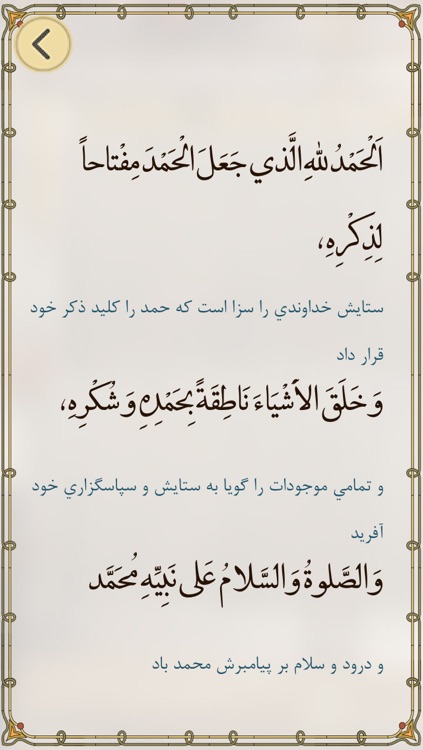 اَلْحَمْدُ للهِ الَّذي جَعَلَ الْحَمْدَ مِفْتاحاً
لِذِكْرِهِ،
ستايش خداوندي را سزا است كه حمد را كليد ذكر خود
قرار داد
وَ خَلَقَ الاَشْيَاءَ نَاطِقَةً بِحَمْدِهِ وَ شُكْرِهِ،
و تمامي موجودات را گويا به ستايش و سپاسگزاري خود
آفريد
وَ الصَّلوةُ وَ السَّلامُ عَلى نَبِيِّهِ مُحَمَّد
و درود و سلام بر پيامبرش محمد باد